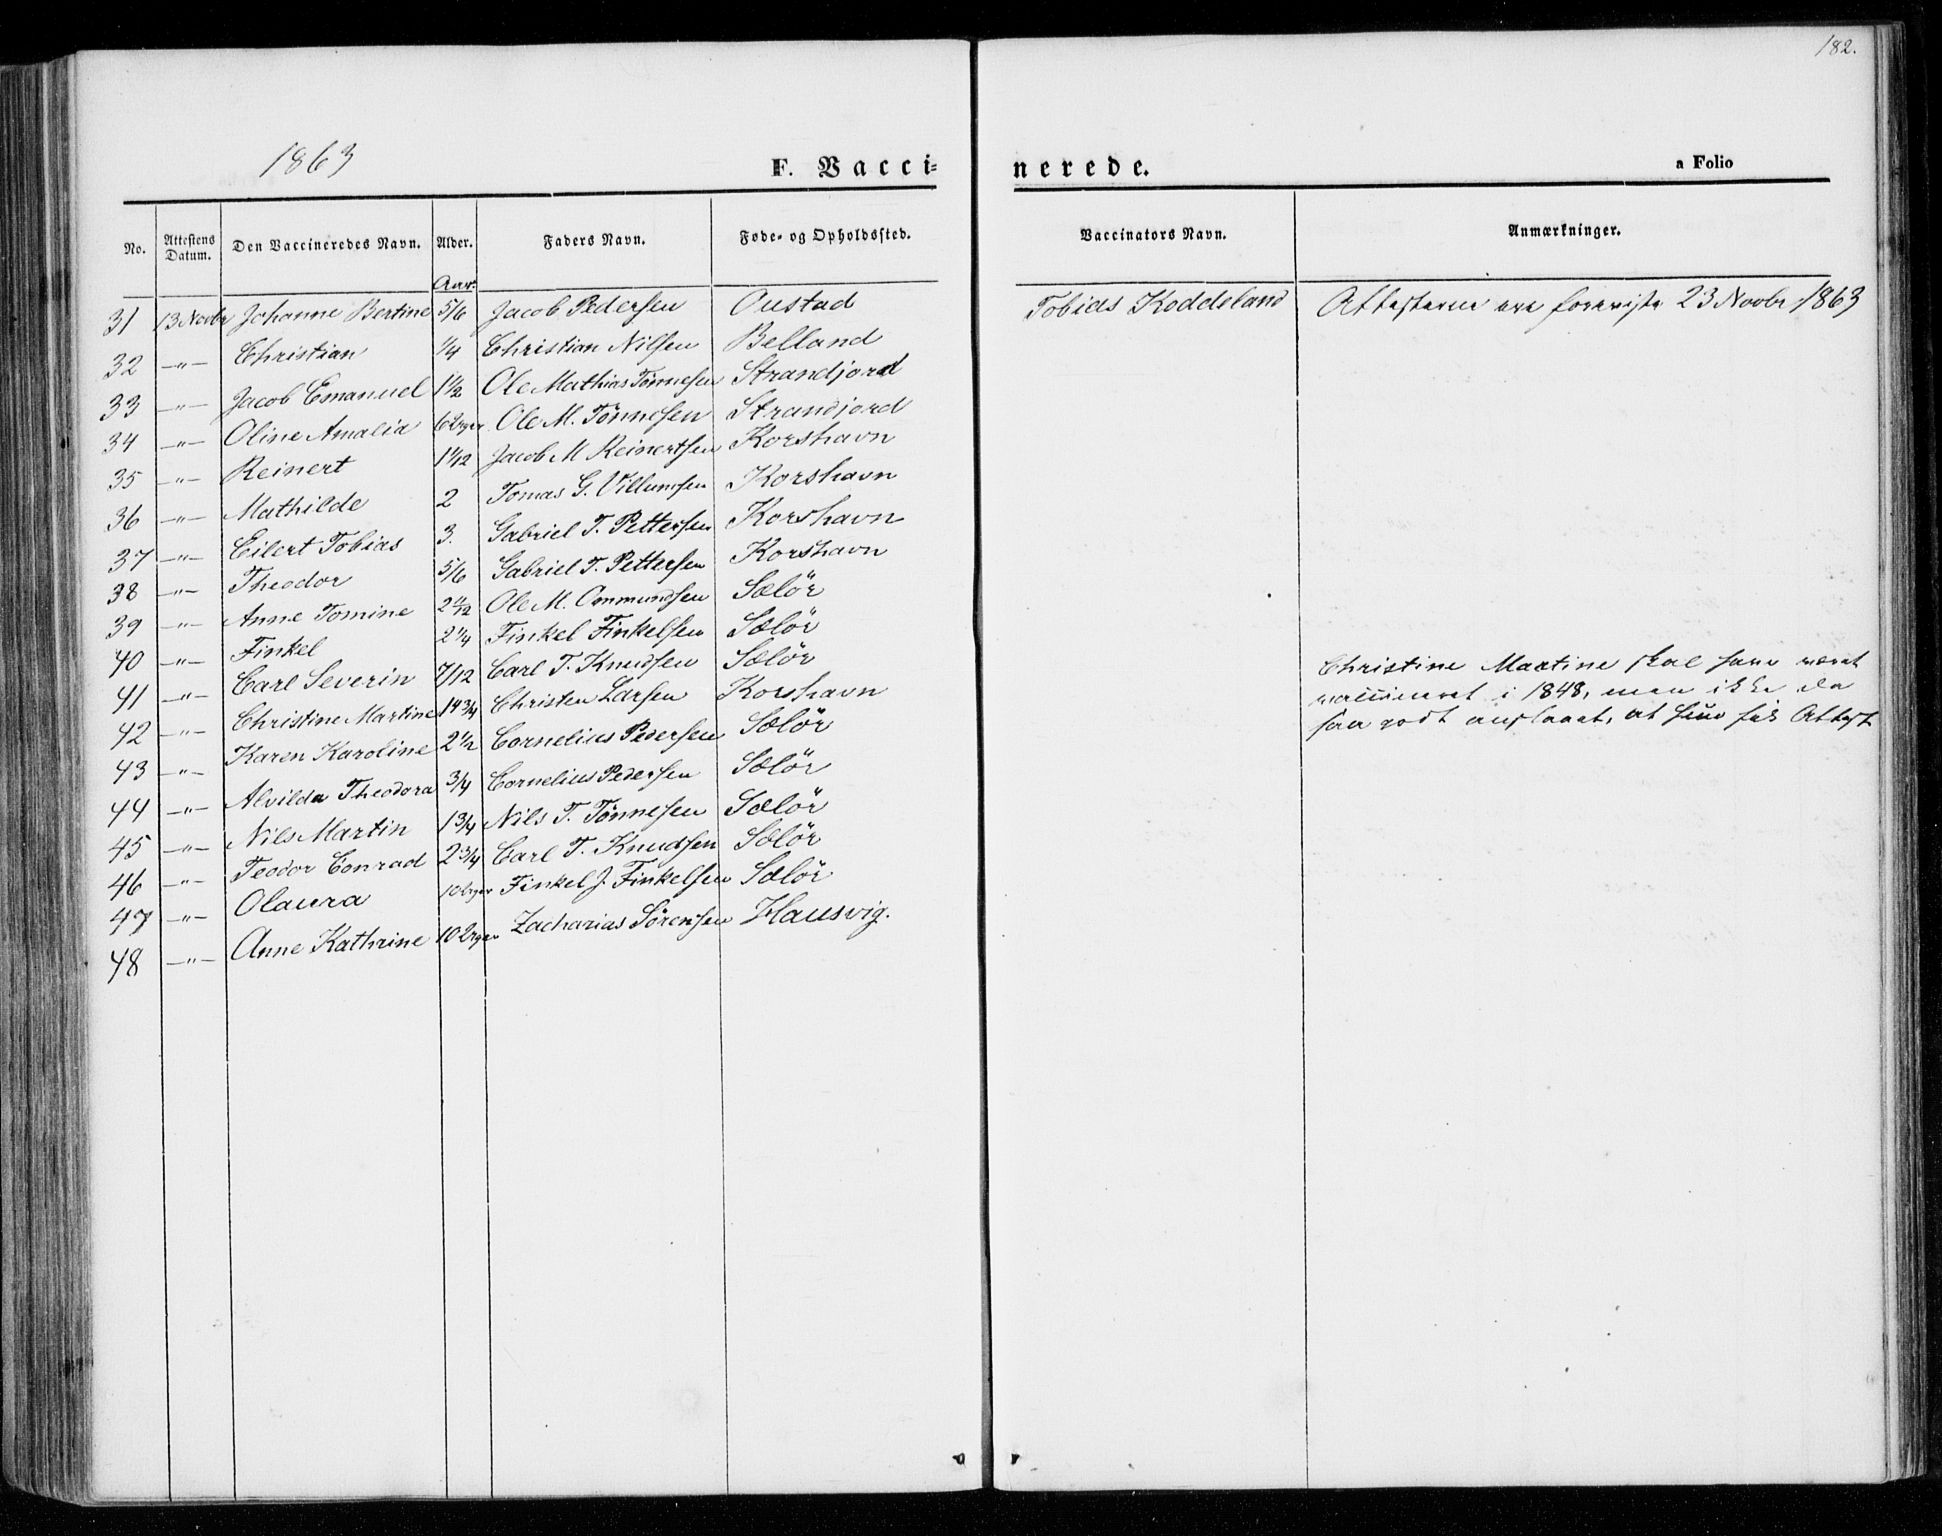 182.
1863
F. Vacci=
nerede.
a Folio
No. Attestens Datum. Den Vaccineredes Navn. Alder. Faders Navn. Føde- og Opholdssted. Vaccinators Navn. Anmærkninger.
Aar:
31 13 Novbr Johanne Bertine 5/6 Jacob Pedersen Oustad Tobias Koddeland Attesterne ere foreviste 23 Novbr 1863
32 —"— Christian 1/4 Christian Nilsen Belland
33 —"— Jacob Emanuel 1 1/2 Ole Mathias Tönnesen Strandjord
34 —"— Oline Amalia 6 Uger Ole M. Tönnesen Strandjord
35 —"— Reinert 1 1/12 Jacob M Reinertsen Korshavn
36 —"— Mathilde 2 Tomas G. Villumsen Korshavn
37 —"— Eilert Tobias 3. Gabriel T. Pettersen Korshavn
38 —"— Theodor 5/6 Gabriel T. Pettersen Korshavn
39 —"— Anne Tomine 2 11/12 Ole M. Ommundsen Sælör
40 —"— Finkel 2 1/4 Finkel Finkelsen Sælör
41 —"— Carl Severin 7/12 Carl T. Knudsen Sælör
42 —"— Christine Martine 14 3/4 Christen Larsen Korshavn
Christine Martine skal have været
vaccineret i 1848, men ikke da
saa godt anslaaet, at hun fik Attest
43 —"— Karen Karoline 2 1/2 Cornelius Pedersen Sælör
44 —"— Alvilda Theodora 3/4 Cornelius Pedersen Sælör
45 —"— Nils Martin 1 3/4 Nils T. Tönnesen Sælör
46 —"— Teodor Conrad 2 3/4 Carl T. Knudsen Sælör
47 —"— Olaura 10 Uger Finkel J. Finkelsen Sælör
48 —"— Anne Kathrine 10 Uger Zacharias Sörensen Hausvig.